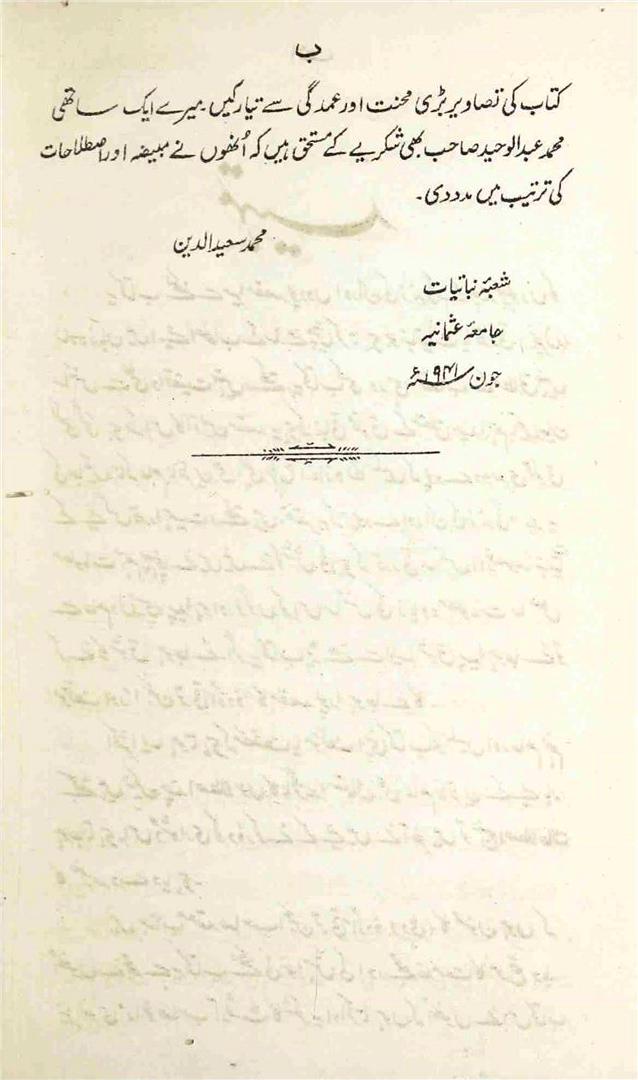 ب
کتاب کی تصاویر بڑی محنت اور عمدگی سے تیار کیں۔ میرے ایک ساتھی
محمد عبدالوحید صاحب بھی شکریے کے مستحق ہیں کہ اُنھوں نے مبیضہ اور اصطلاحات
کی ترتیب میں مدد دی۔
محمد سعید الدین
شعبۂ نباتیات
جامعۂ عثمانیہ
جون ۱۹۴۱ء